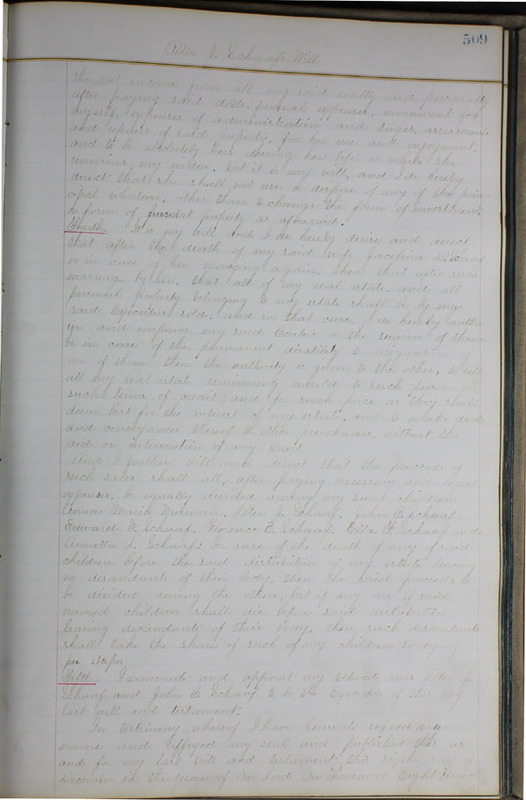 509
Peter J. Schaaf's Will
the net income from all my said realty and personalty
after paying said debts, funeral expenses, monument for
myself, expenses of administration and taxes, assessments
and repairs of said property, for her use and enjoyment
and to be absolutely hers during her life or while she
remains my widow, but it is my will, and I do hereby
direct that she shall not use or dispose of any of the prin-
cipal whatever, other than to change the form of investment
or form of personal property as aforesaid.
Fourth. It is my will and I do hereby desire and direct
that after the death of my said wife Schaaf
or in case of her marrying again, then that after such
marriage by her, that all of my real estate, and all
personal property belonging to my estate shall be by my
said Executors sold, and in that case, I do hereby author-
ize and empower my said Executors or the survivor of them
or in case of the permanent disability or resignation of
one of them then the authority is given to the other, to sell
all my real estate to such person on
such terms of credit and for such price as they shall
deem best for the interest of my estate, and to make deeds
and conveyances thereof to the purchasers, without the
and or intervention of any Court
And I further will and direct that the proceeds of
such sales shall all, after paying necessary and legal
expenses, be equally divided among my seven children
Marie Peter J. Schaaf, John C. Schaaf,
Edward N. Schaaf, Florence E. Schaaf, Ella Schaaf and
Annetta L. Schaaf: In case of the death of any of said
children before the said distribution of my estate leaving
no descendants of their body, then the said proceeds to
be divided among the other, but if any one of said
named children shall die before said distribution
leaving descendants of their body, then such descendants
shall take the share of such of my children so dying
per stirpes
Fifth. I nominate and appoint my beloved sons Peter J.
Schaaf and John C. Schaaf to be the Executors of this my
last will and testament:
In testimony whereof I have hereunto signed my
name and affixed my seal and published this as
and for my last will and testament this day of
December in the year of our Lord One thousand Eight